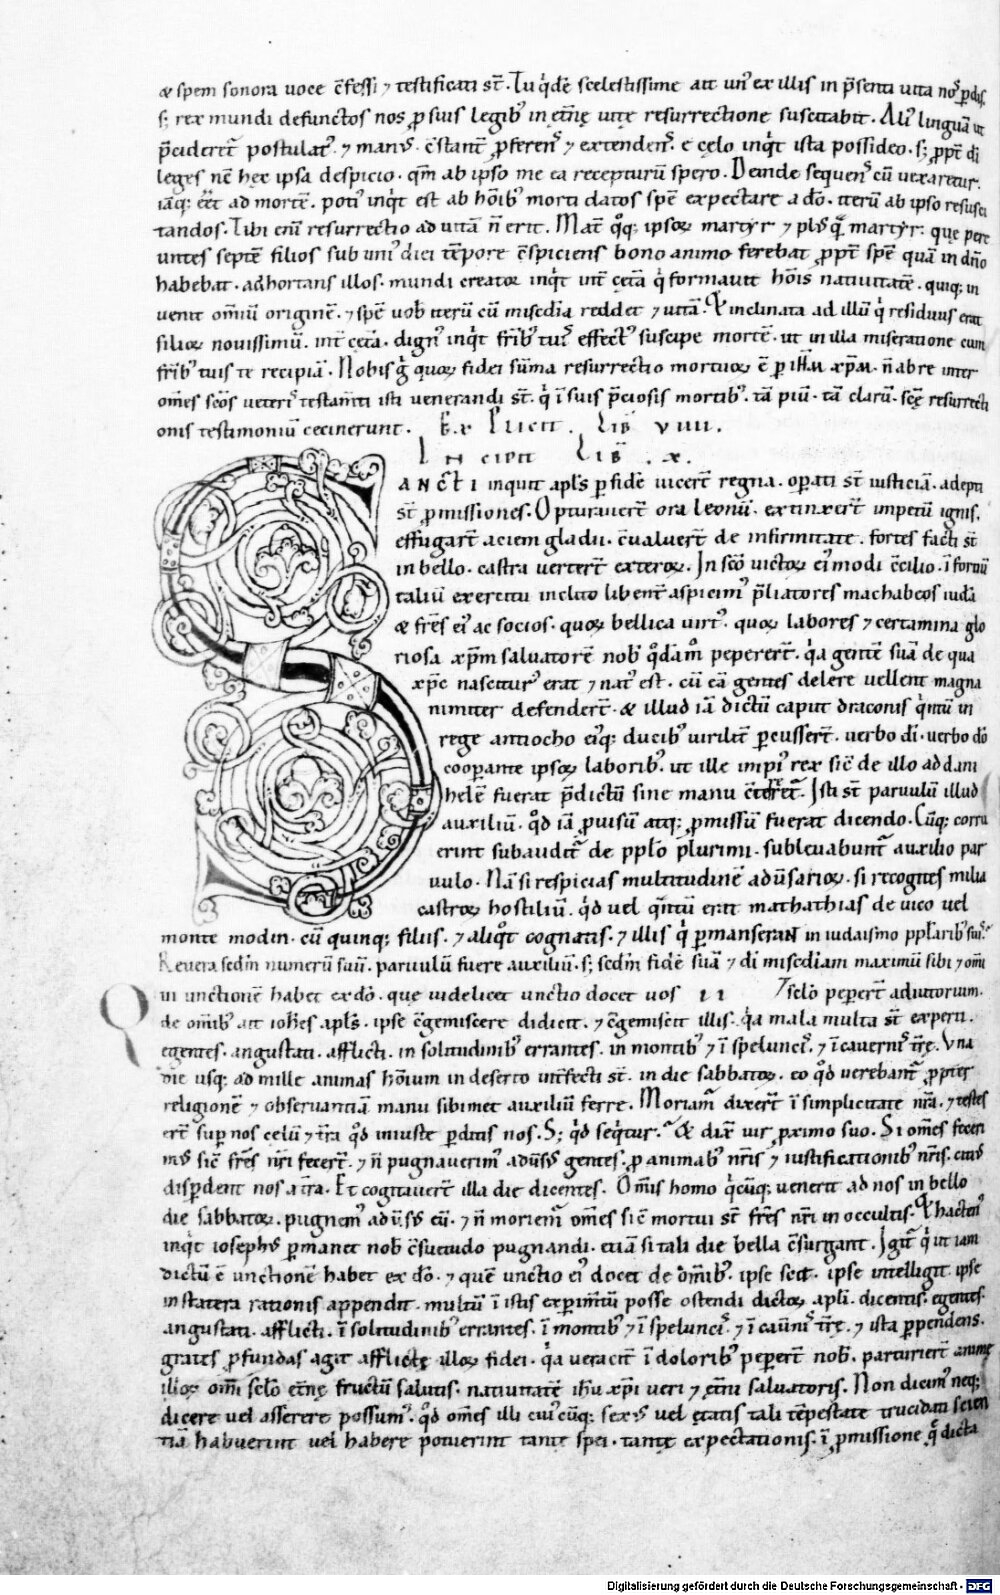 & spem sonora uoce c̄fessi ⁊ testificati st̄. Tu q̇dē scelestissime ait unꝰ ex illis in p̄senti uita noꝰ ꝑdis.
s; rex mundi defunctos nos ꝓ suis legibꝰ in etn̄ę uitę resurrectione suscitabit. Aliꝰ linguā ut
p̄cideret̄ postulatꝰ. ⁊ manꝰ c̄stant̄ ꝓferenꝰ ⁊ extendenꝰ. e cęlo inq̇t ista possideo. s; ꝓpt̄ di
leges nc̄ hęc ipsa despicio. qm̄ ab ipso me ea recepturū spero. Deinde sequenꝰ cū uexaretur.
ad mortē. potiꝰ inq̇t est ab hōibꝰ morti datos spē expectare a do. iterū ab ipso resusci
tandos. Tibi enī resurrectio ad uitā n̄ erit. Mat̄ q̊q; ipsoꝝ martyr ⁊ plꝰ q̄ martyr. quę pere
untes septē filios sub uniꝰ diei tēpore c̄spiciens bono animo ferebat ꝓpt̄ spē quā in dn̄o
habebat. adhortans illos. mundi creator inq̇t int̄ cetā q̇ formauit hōis natiuitatē. quiq; in
uenit omīū originē. ⁊ spc̄ uob̄ iterū cū misc̄dia reddet ⁊ uitā. Et inclinata ad illū q̇ residuus erat
filioꝝ nouissimū. int̄ cetā. dignꝰ inq̇t fr̄ibꝰ tuiꝰ effectꝰ suscipe mortē. ut in illa miseratione cum
fr̄ibꝰ tuis te recipiā. Nobis g̊ quoꝝ fidei sūma resurrectio mortuoꝝ ē ꝑ ih̄m xp̄m. n̄ abre inter
om̄es sc̄os ueterꝰ testam̄ti isti uenerandi st̄. q̇ ī suis p̄ciosis mortibꝰ. tā piū. tā clarū. sc̄ę resurrecti
onis testimoniū cecinerunt. Explicit. Lib̄ viiii.
Incipit Lib̄. .x.
SANCTI inquit apl̄s ꝑ fidē uicert̄ regna. opati st̄ iusticiā. adepti
st̄ ꝓmissiones. Opturauert̄ ora leonū. extinxert̄ impetū ignis.
effugart̄ aciem gladii. c̄ualuert̄ de infirmitate. fortes facti st̄
in bello. castra uertert̄ exteroꝝ. In sc̄o uictoꝝ eiꝰmodi c̄cilio. ī fortiū
taliū exercitu inclito libent̄ aspicimꝰ p̄liatores machabeos iudā
& fr̄es eiꝰ ac socios. quoꝝ bellica uirtꝰ. quoꝝ labores ⁊ certamina glo
riosa xp̄m saluatorē nob̄ q̊dāmꝰ pepererт̄. q̇a gentē suā de qua
xp̄c nasciturꝰ erat ⁊ natꝰ est. cū eā gentes delere uellent magna
nimiter defendert̄. & illud iā dictū caput draconis q̄ntū in
rege antiocho eiꝰq; ducibꝰ uirilit̄ ꝑcussert̄. uerbo di. uerbo do
cooꝑante ipsoꝝ laboribꝰ. ut ille impiꝰ rex sic̄ de illo ad dani
helē fuerat p̄dictū sine manu c̄teret̄. Isti st̄ paruulū illud
auxiliū. q̊d iā ꝓuisū atq; ꝓmissū fuerat dicendo. Cūq; corru
erint subauditꝰ de pp̄lo plurimi. subleuabunt̄ auxilio par
uulo. Nā si respicias multitudinē adūsarioꝝ. si recognites milia
castroꝝ hostiliū. q̊d uel q̄ntū erit mathathias de uico uel
monte modin. cū quinq; filiis. ⁊ aliq̊t cognatis. ⁊ illis q̇ ꝑmanseran̄ in iudaismo pp̄laribꝰ suiꝰ.
Reuera sed̄m numerū suū. paruulū fuere auxiliū. s; sed̄m fidē suā ⁊ di misc̄diam maximū sibi ⁊ omi
Qui unctionē habet ex do. que uidelicet unctio docet uos ii ⁊ sclo peꝑert̄ adiutorium.
de om̄ibꝰ ait ioh̄es apl̄s. ipse c̄gemiscere didicit. ⁊ c̄gemiscit illis. q̇a mala multa st̄ experti.
egentes. angustati. afflicti. in solitudinibꝰ errantes. in montibꝰ ⁊ ī speluncꝰ. ⁊ ī cauernꝰ tr̄ę. Vna
die usq; ad mille animas hōium in deserto int̄fecti st̄. in die sabbatoꝝ. eo q̊d uerebant̄ ꝓpter
religionē ⁊ obseruantiā manu sibimet auxiliū ferre. Moriamꝰ dixert̄ ī simplicitate nr̄a. ⁊ testes
ert̄ suꝑ nos celū ⁊ tr̄a q̊d iniuste ꝑditis nos. S; q̊d seq̇tur. & dix̄ uir ꝓximo suo. Si om̄es feceri
mꝰ sic̄ fr̄es nr̄i fecert̄. ⁊ n̄ pugnauerimꝰ adūsꝰ gentes. ꝓ animabꝰ nr̄is ⁊ iustificationibꝰ nr̄is. citiꝰ
disꝑdent nos a tr̄a. Et cogitauert̄ illa die dicentes. Om̄is homo q̇cūq; uenerit ad nos in bello
die sabbatoꝝ. pugnemꝰ adūsꝰ eū. ⁊ n̄ moriemꝰ om̄es sic̄ mortui st̄ fr̄es nr̄i in occultis. Et hactenꝰ
inq̇t iosephꝰ ꝑmanet nob̄ c̄suetudo pugnandi. etiā si tali die bella c̄surgant. Igit̄ q̇ ut iam
dictū ē unctionē habet ex do. ⁊ quē unctio eiꝰ docet de om̄ibꝰ. ipse scit. ipse intelligit. ipse
in statera rationis appendit. multū ī istis exꝑim̄tū posse ostendi dictoꝝ apl̄i. dicentis. egentes.
angustati. afflicti. ī solitudinibꝰ errantes. ī montibꝰ ⁊ ī speluncꝰ. ⁊ ī cau̅nꝰ tr̄ę. ⁊ ista ꝑpendens.
grates ꝓfundas agit afflictę illoꝝ fidei. q̇a ueracit̄ ī doloribꝰ peꝑert̄ nob̄. parturiert̄ animę
illoꝝ om̄i sclo etn̄ę fructū salutis. natiuitatē ih̄u xp̄i ueri ⁊ etn̄i saluatoris. Non dicimꝰ neq;
dicere uel asserere possumꝰ. q̊d om̄es illi cuiꝰcūq; sexꝰ uel ętatis tali tēpestate trucidati scien
tiā habuerint uel habere potuerint tantę spei. tantę expectationis. ī ꝓmissione q̄ dicta
Digitalisierung gefördert durch die Deutsche Forschungsgemeinschaft - DFG